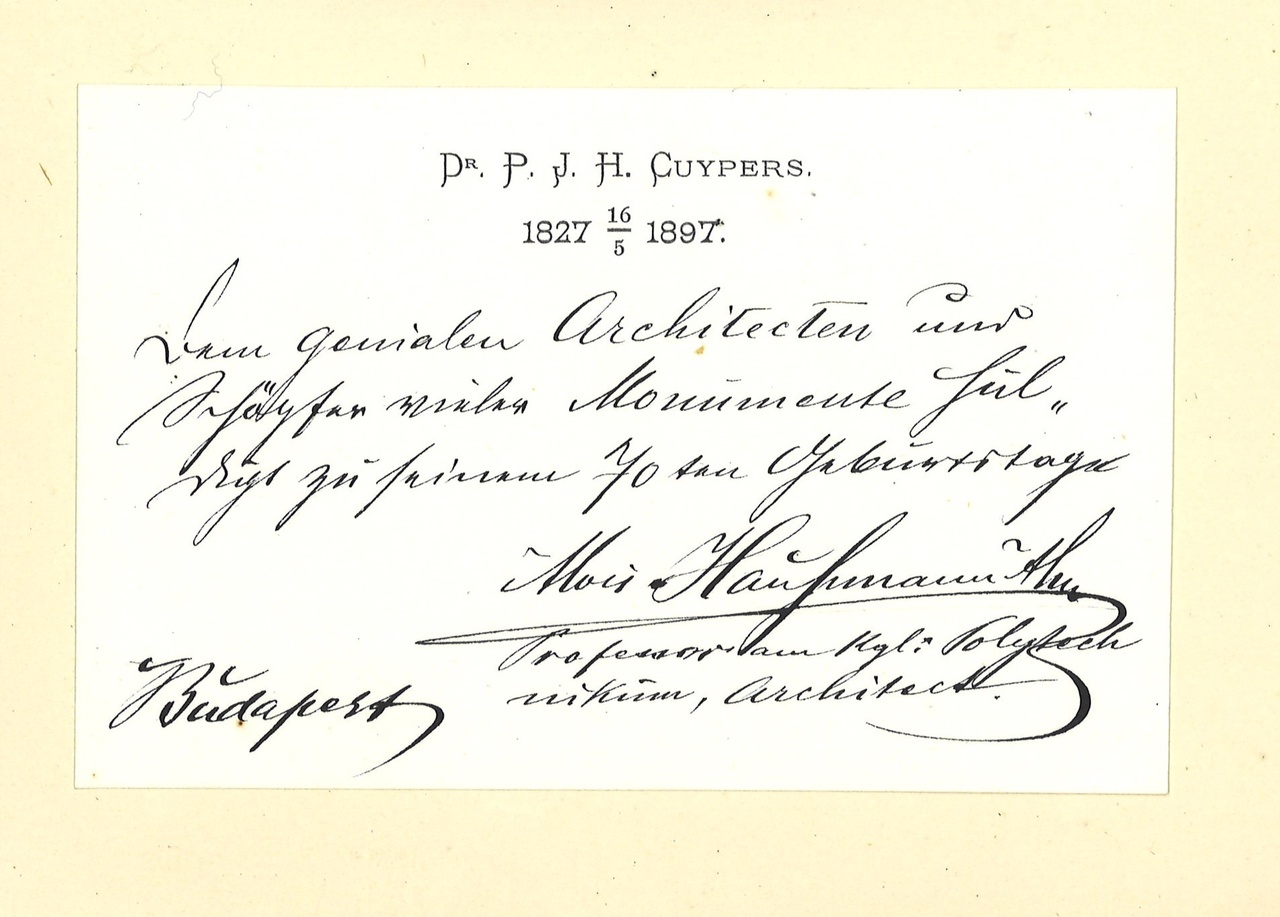 Dr. P. J. H. Cuypers.
1827 16/5 1897.
Dem genialen Architecten und
Schöpfer vieler Monumente hul„
digt zu seinem 70ten Geburtstage
Alois Hauszmann
Professor am kgl: Polytech
nikum, Architect.
Budapest